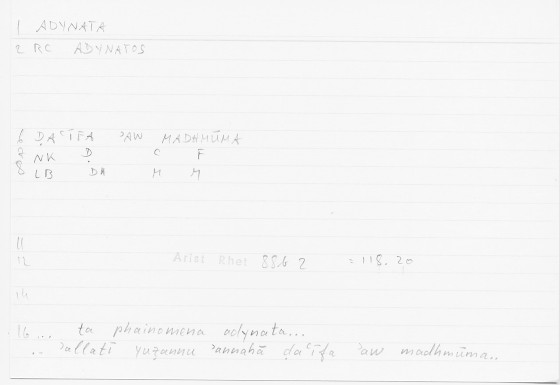 1 ADYNATA
2 RC ADYNATOS
6 ḌAʿĪFA ʾAW MADHMŪMA
7 NK Ḍ C F
8 LB DH M M
11
12 Arist Rhet 886 2 = 118. 20
14
16 ... ta phainomena adynata...
... ʾallatī yuẓannu ʾannahā ḍaʿīfa ʾaw madhmūma..